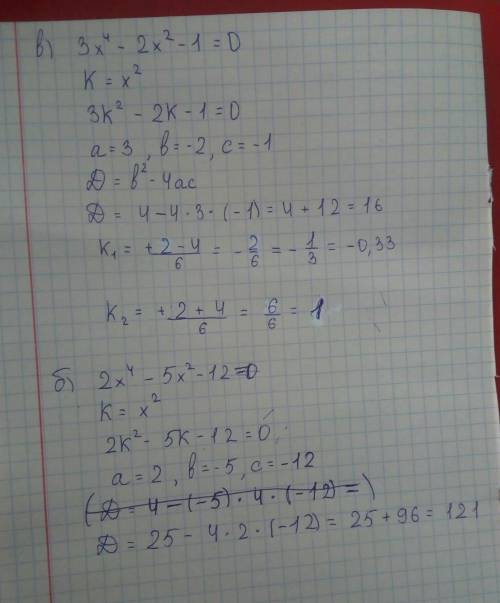 в) 3x⁴ - 2x² - 1 = 0
K = x²
3k² - 2k - 1 = 0
a = 3 , b = -2 , c = -1
D = b² - 4ac
D = 4 - 4 · 3 · (-1) = 4 + 12 = 16
K₁ = +2 - 4 / 6 = - 2/6 = - 1/3 = -0,33
K₂ = +2 + 4 / 6 = 6/6 = 1
б) 2x⁴ - 5x² - 12 = 0
K = x²
2k² - 5k - 12 = 0
a = 2 , b = -5 , c = -12
(D = 4 - (-5) · 4 · (-12) = )
D = 25 - 4 · 2 · (-12) = 25 + 96 = 121